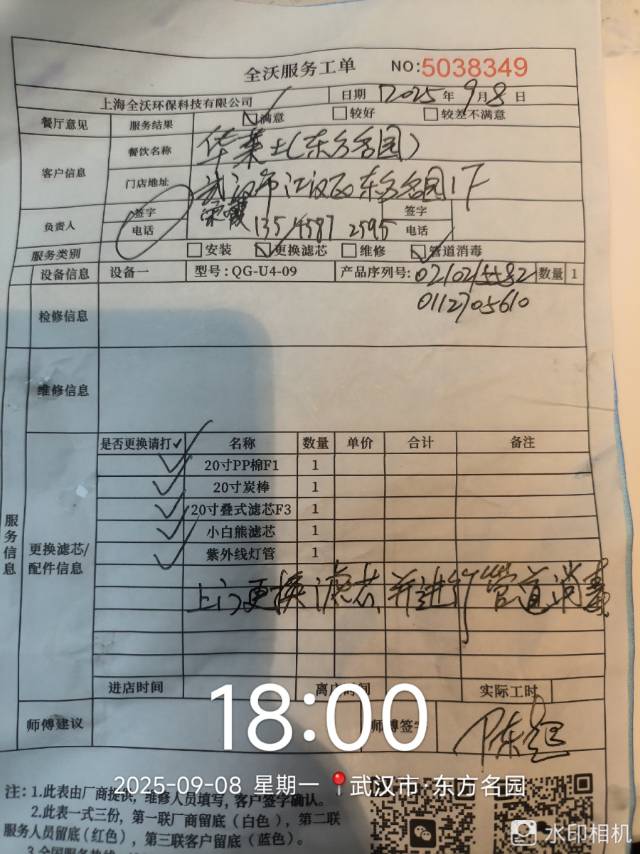 全沃服务工单 NO:5038349
上海全沃环保科技有限公司 日期 2025年9月8日
餐厅意见 服务结果 ☑满意 □较好 □较差不满意
客户信息 餐饮名称 华莱士(东方名园)
门店地址 武汉市江汉区东方名园1F
负责人 签字 签字
电话 电话
服务类别 □安装 ☑更换滤芯 □维修 ☑管道消毒
设备信息 设备一 型号:QG-U4-09 产品序列号: 数量 1
0112705610
检修信息
维修信息
服务信息
更换滤芯/配件信息
是否更换请打✓ 名称 数量 单价 合计 备注
✓ 20寸PP棉F1 1
✓ 20寸炭棒 1
✓ 20寸叠式滤芯F3 1
✓ 小白熊滤芯 1
✓ 紫外线灯管 1
上门更换滤芯并进行管道消毒
进店时间 离店时间 实际工时
18:00
师傅建议 师傅签字
2025-09-08 星期一 武汉市·东方名园
注:1.此表由厂商提供,维修人员填写,客户签字确认。
2.此表一式三份,第一联厂商留底(白色),第二联
服务人员留底(红色),第三联客户留底(蓝色)。
3.全国服务热线
水印相机